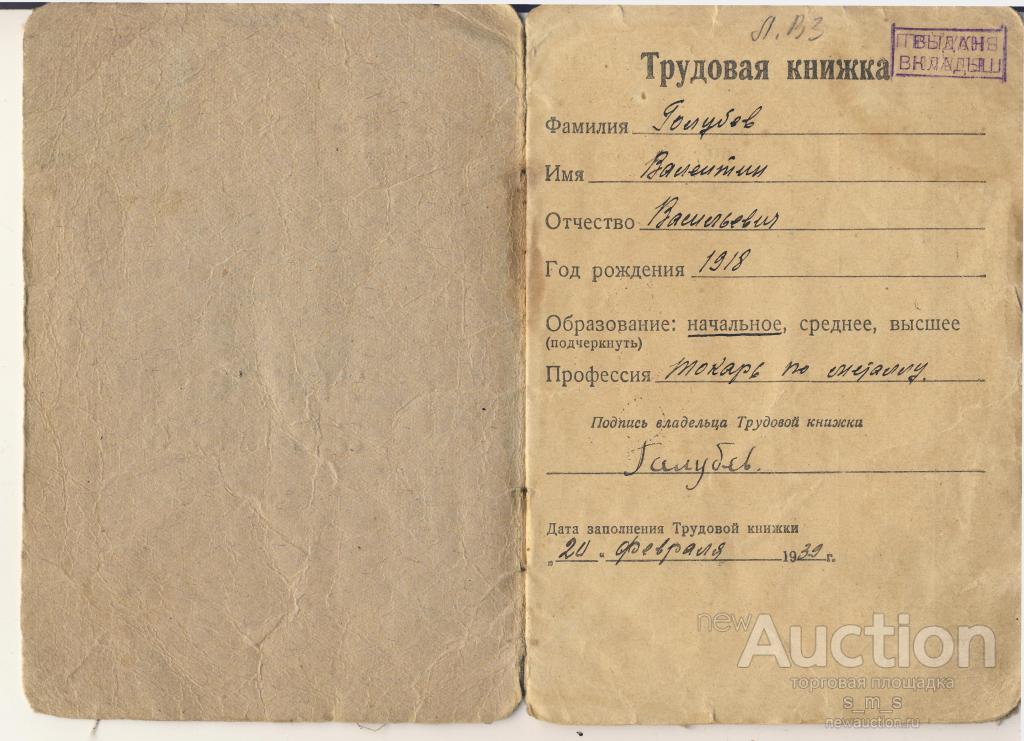 Л. В3
ВЫДАН
ВКЛАДЫШ
Трудовая книжка
Фамилия Голубев
Имя Валентин
Отчество Васильевич
Год рождения 1918
Образование: начальное, среднее, высшее
(подчеркнуть)
Профессия токарь по металлу.
Подпись владельца Трудовой книжки
Голубев.
Дата заполнения Трудовой книжки
„20“ февраля 1939 г.
newAuction
торговая площадка
s_m_s
newauction.ru